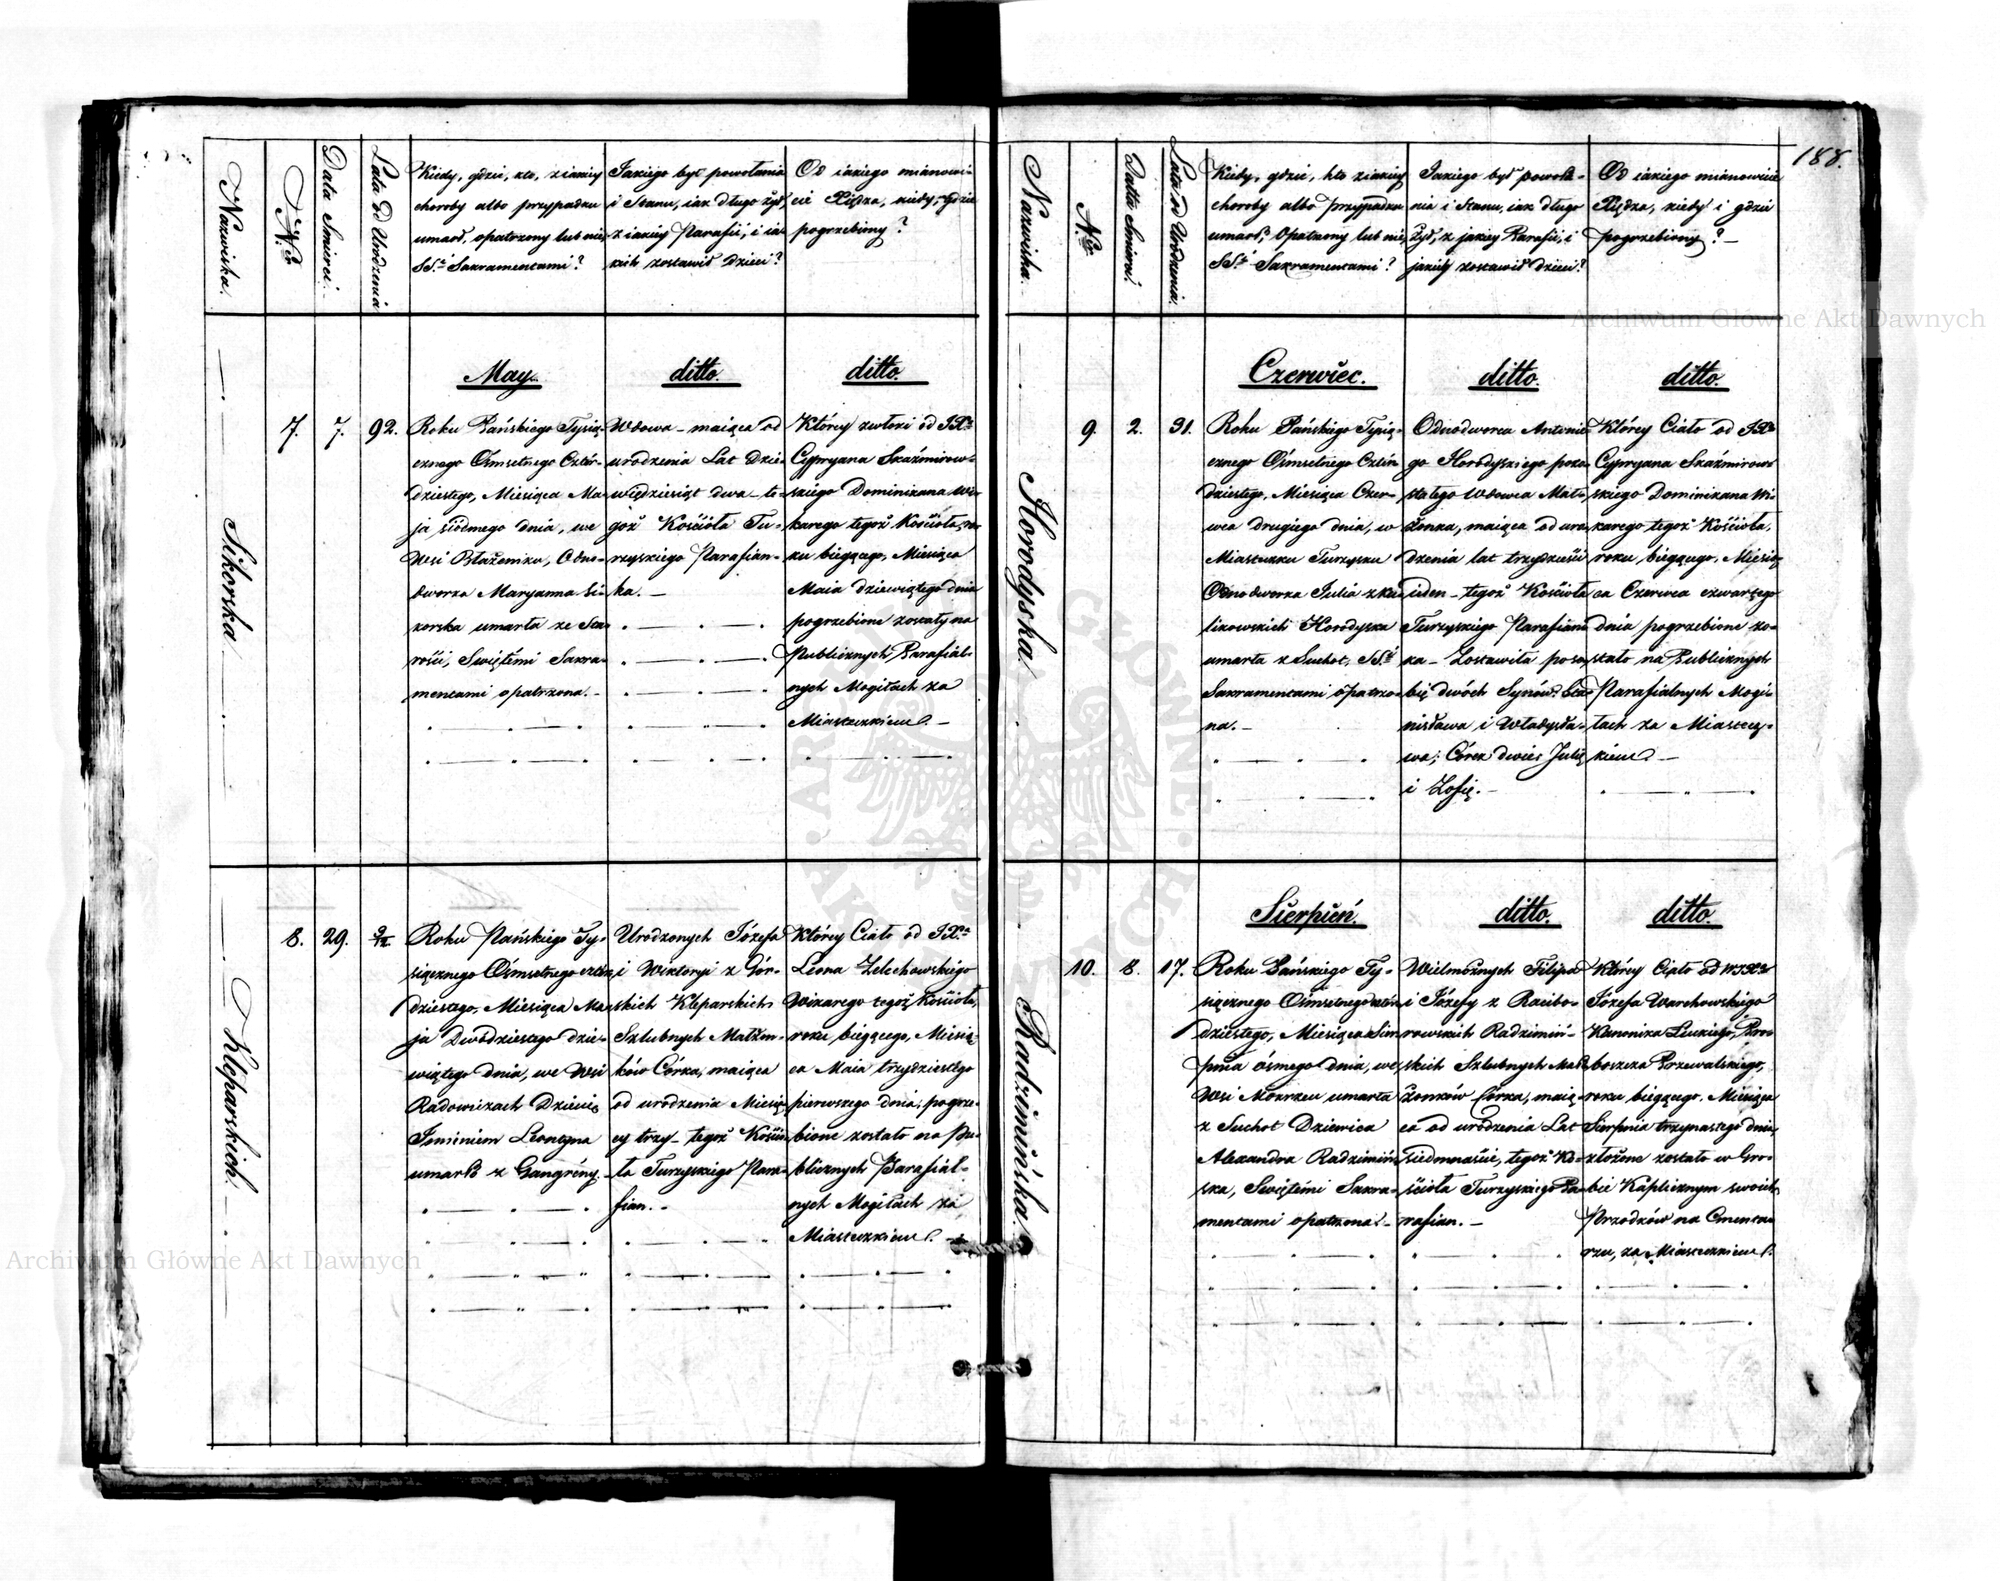 188.
Nazwiska.
Nr
Data Śmierci.
Lata od Urodzenia
Kiedy, gdzie, kto, z iakiey
choroby albo przypadku
umarł, opatrzony lub nie,
SS. Sakramentami?
Jakiego był powołania
i Stanu, iak długo żył,
z iakiey Parafii, i ia-
kich zostawił Dzieci?
Od iakiego mianowi-
cie Xiędza, kiedy, gdzie
pogrzebiony?
Sikorska
7.
7.
92.
May.
Roku Pańskiego Tysią-
cznego Ośmsetnego Czter-
dziestego, Miesiąca Ma-
ja siódmego dnia, we
Wsi Błażeniku, Odno-
dworka Maryanna Si-
korska umarła ze Sta-
rości, Swiętemi Sakra-
mentami opatrzona.
ditto.
Wdowa maiąca od
urodzenia Lat Dzie-
więdziesiąt dwa te-
goż Kościoła Tu-
rzyskiego Parafian-
ka.
ditto.
Którey zwłoki od JX
Cypryana Skaźmirow-
skiego Dominikana Wi-
karego tegoż Kościoła, ro-
ku biegącego, Miesiąca
Maia dziewiątego dnia
pogrzebione zostały na
Publicznych Parafial-
nych Mogiłach za
Miasteczkiem.
Kleparskich.
8.
29.
Roku Pańskiego Ty-
siącznego Ośmsetnego czter-
dziestego, Miesiąca Ma-
ja Dwódziestego dzie-
wiątego dnia, we Wsi
Radowiczach Dziecię
Jminiem Leontyna
umarło z Gangreny.
Urodzonych Józefa
i Wiktoryi z Gór-
skich Kleparskich
Szlubnych Małżon-
ków Córka, maiąca
od urodzenia Miesię-
cy trzy tegoż Kościo-
ła Turzyskiego Para-
fian.
Którey Ciało od JX
Leona Zelechowskiego
Wikarego tegoż Kościoła,
roku biegącego, Miesią-
ca Maia trzydziestego
pierwszego dnia, pogrze-
bione zostało na Pu-
blicznych Parafial-
nych Mogiłach za
Miasteczkiem.
Nazwiska.
Nr
Datta Śmierci.
Lata od Urodzenia.
Kiedy, gdzie, kto z iakiey
choroby albo przypadku
umarł, Opatrzony lub nie,
SS. Sakramentami?
Jakiego był powoła-
nia i Stanu, iak długo
żył, z jakiey Parafii, i
jakich zostawił Dzieci?
Od iakiego mianowicie
Xiędza, kiedy i gdzie
pogrzebiony?
Horodyska.
9.
2.
31.
Czerwiec.
Roku Pańskiego Tysią-
cznego Ośmsetnego Czter-
dziestego, Miesiąca Czer-
wca drugiego dnia, w
Miasteczku Turzysku
Odnodworka Julia z Ka-
likowskich Horodyska
umarła z Suchot, SS.
Sakramentami opatrzo-
na.
ditto.
Odnodworca Antonie-
go Horodyskiego pozo-
stałego Wdowca Mał-
żonka, maiąca od uro-
dzenia lat trzydzieści
ieden tegoż Kościoła
Turzyskiego Parafian-
ka Zostawiła poso-
bię dwóch Synów: Sta-
nisława i Władysła-
wa; Córek dwie: Julię
i Zofię.
ditto.
Którey Ciało od JX
Cypryana Skaźmirow-
skiego Dominikana Wi-
karego tegoż Kościoła,
roku biegącego, Miesią-
ca Czerwca czwartego
dnia pogrzebione zo-
stało na Publicznych
Parafialnych Mogi-
łach za Miastecz-
kiem
Radzimińska.
10.
8.
17.
Sierpień.
Roku Pańskiego Ty-
siącznego Ośmsetnego czter-
dziestego, Miesiąca Sier-
pnia ósmego dnia, we
Wsi Mokrzcu umarła
z Suchot Dziewica
Alexandra Radzimiń-
ska, Swiętemi Sakra-
mentami opatrzona.
ditto.
Wielmożnych Filipa
i Józefy z Racibo-
rowskich Radzimiń-
skich Szlubnych Mał-
żonków Córka, maią-
ca od urodzenia Lat
siedmnaście, tegoż Ko-
ścioła Turzyskiego Pa-
rafian.
ditto.
Którey Ciało od WJX
Józefa Warchowskiego
Kanonika Łuckiego, Pro-
boszcza Przewalskiego,
roku biegącego, Miesiąca
Sierpnia trzynastego dnia,
złożone zostało w Gro-
bie Kaplicznym swoich
Przodków na Cmenta-
rzu, za Miasteczkiem.
Archiwum Główne Akt Dawnych
Archiwum Główne Akt Dawnych